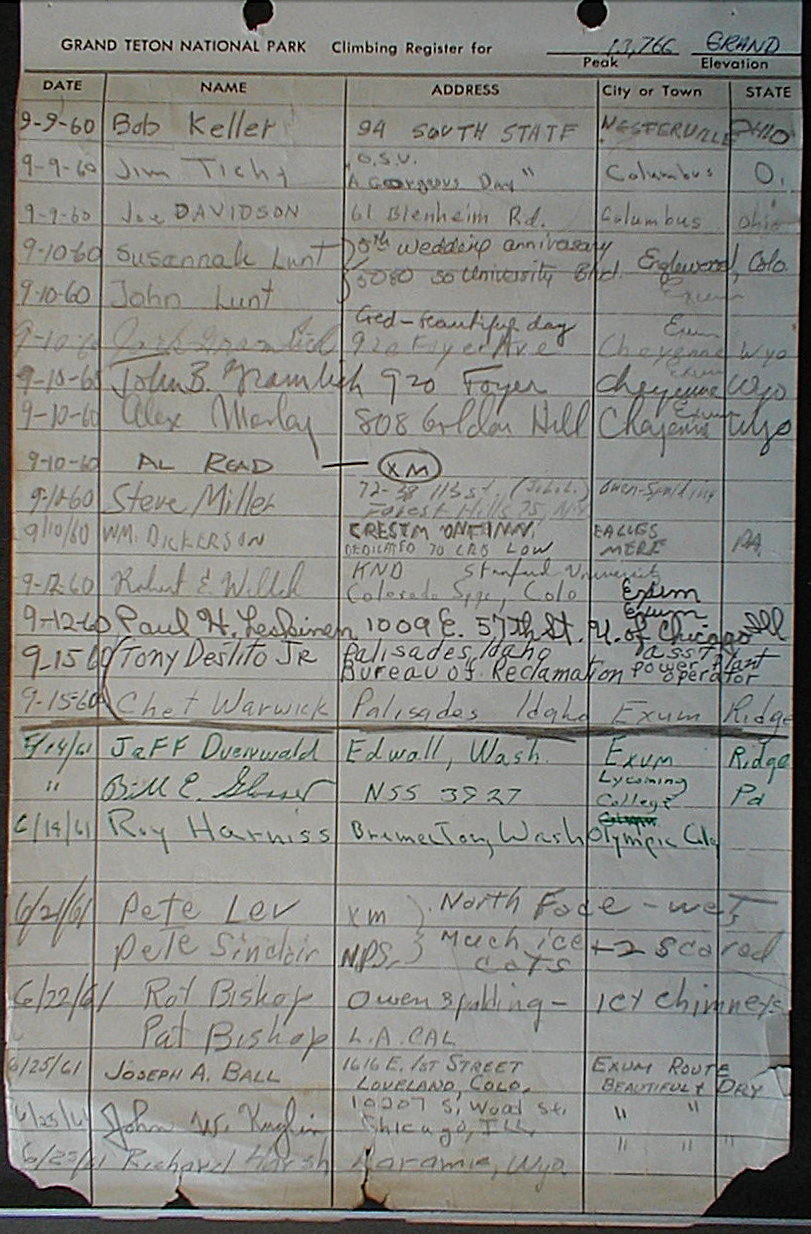 GRAND TETON NATIONAL PARK Climbing Register for 13,766 GRAND
Peak Elevation
DATE NAME ADDRESS City or Town STATE
9-9-60 Bob Keller 94 SOUTH STATE WESTERVILLE OHIO
9-9-60 Jim Tichy O.S.U. "A Gorgeous Day" Columbus O.
9-9-60 Joe DAVIDSON 61 Blenheim Rd. Columbus Ohio
9-10-60 Susannah Lunt 5th wedding anniversary
9-10-60 John Lunt 5080 So University Blvd. Englewood, Colo. Exum
Ged-beautiful day Exum
9-10-60 Gramlich 920 Foyer Ave Cheyenne Wyo
Exum
9-10-60 John B. Gramlich 920 Foyer Cheyenne Wyo
Exum
9-10-60 Alex Morley 808 Golden Hill Cheyenne Wyo
9-10-60 AL READ — XM
9-10-60 Steve Miller 72-38 113 st. Forest Hills 75, NY Owen-Spalding
9/10/60 WM. DICKERSON CRESTMONT INN. EAGLES MERE PA.
DEDICATED TO LOW
9-12-60 Robert E. KND Stanford University
Colorado Spgs, Colo Exum
Exum
9-12-60 Paul H. 1009 E. 57th St. U. of Chicago Ill
9-15 60 Tony Deslito JR Palisades, Idaho Ass't
Bureau of Reclamation Power Plant operator
9-15-60 Chet Warwick Palisades Idaho Exum Ridge
5/14/61 JEFF Duenwald Edwall, Wash. EXUM Ridge
" Bill E. NSS 3927 Lycoming College Pa
6/19/61 Roy Harniss Bremerton, Wash Olympic Coll
6/21/61 Pete Lev XM North Face - wet
Pete Sinclair NPS. Much ice + 2 scared cats
6/22/61 Roy Bishop Owen Spalding - ICY chimneys
Pat Bishop L.A. CAL
6/25/61 JOSEPH A. BALL 1616 E. 1ST STREET EXUM ROUTE
LOVELAND, COLO. BEAUTIFUL & DRY
6/25/61 John W. 10207 S. Wood st. " "
Chicago, Ill.
6/25/61 Richard Harsh Laramie, Wyo " " "